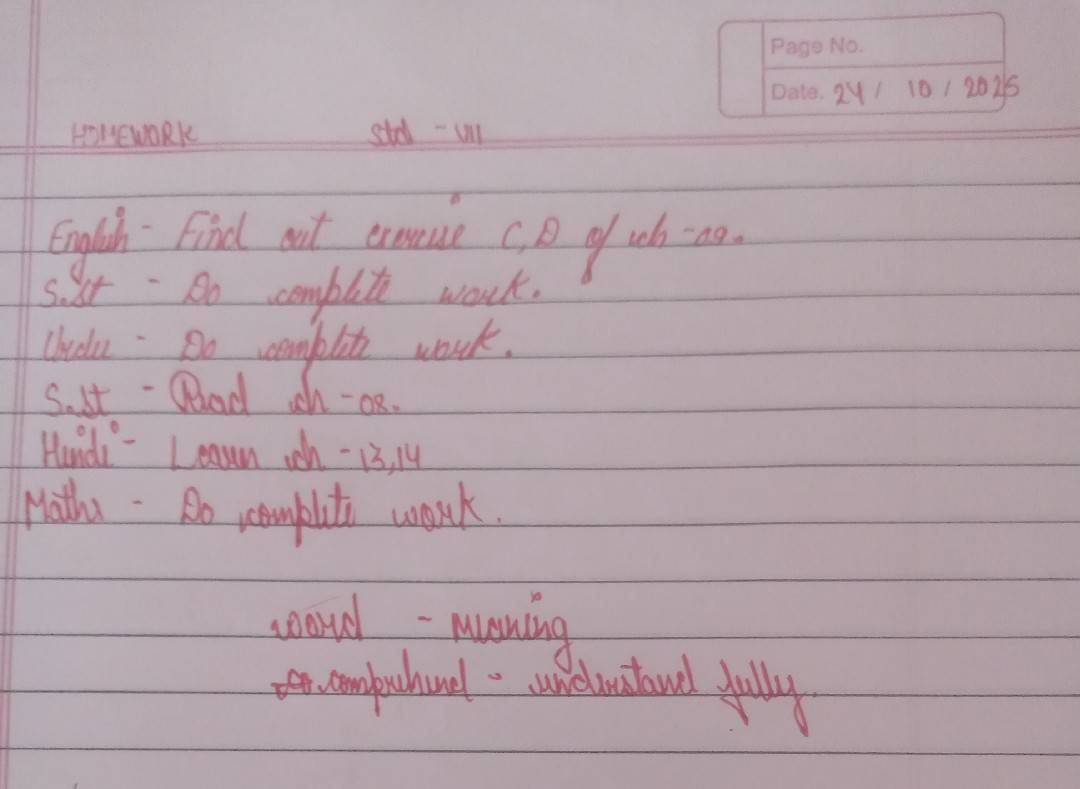 Page No.
Date. 24 / 10 / 2025
HOMEWORK Std - VII
English - Find out exercise C, D of ch - 09.
S.St - Do complete work.
Urdu - Do complete work.
S.St - Read ch - 08.
Hindi - Learn ch - 13,14
Maths - Do complete work.
word - Meaning
comprehend - understand fully.